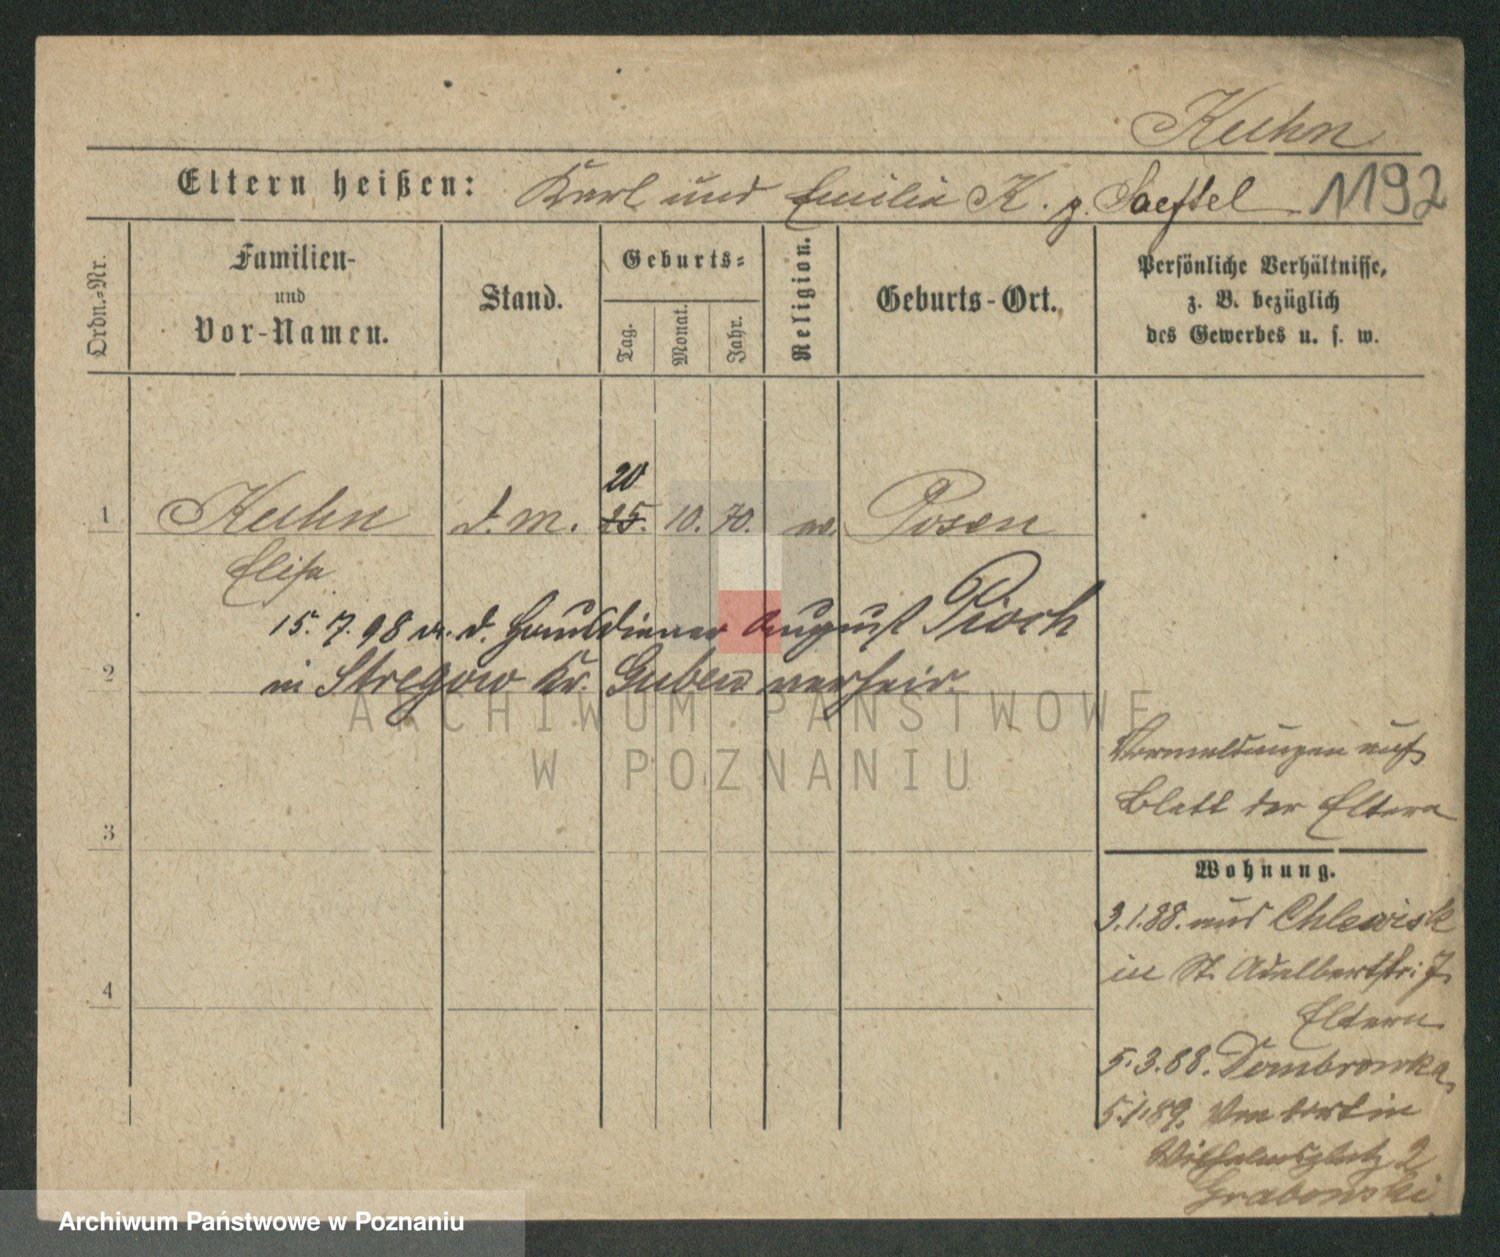 Kuhn
Eltern heißen: Karl und Emilie K. g. Saeftel 1192
Ordn.-Nr.
Familien-
und
Vor-Namen.
Stand.
Geburts-
Tag.
Monat.
Jahr.
Religion.
Geburts-Ort.
Persönliche Verhältnisse,
z. B. bezüglich
des Gewerbes u. s. w.
20
1 Kuhn d. m. 25. 10. 70. Posen
Elise
15. 7. 98 m. d. Hausdiener August Pioch
2 in Stregow Kr. Guben verheir.
ARCHIWUM PAŃSTWOWE
W POZNANIU
Vormeldungen auf
Blatt der Eltern
3
Wohnung.
3.1.88. aus Chlewisk
in St. Adalbertstr: 7.
4
Eltern
5.3.88. Dombrowka,
5.1.89. Von dort in
Wilhelmsplatz 2
Grabowski
Archiwum Państwowe w Poznaniu